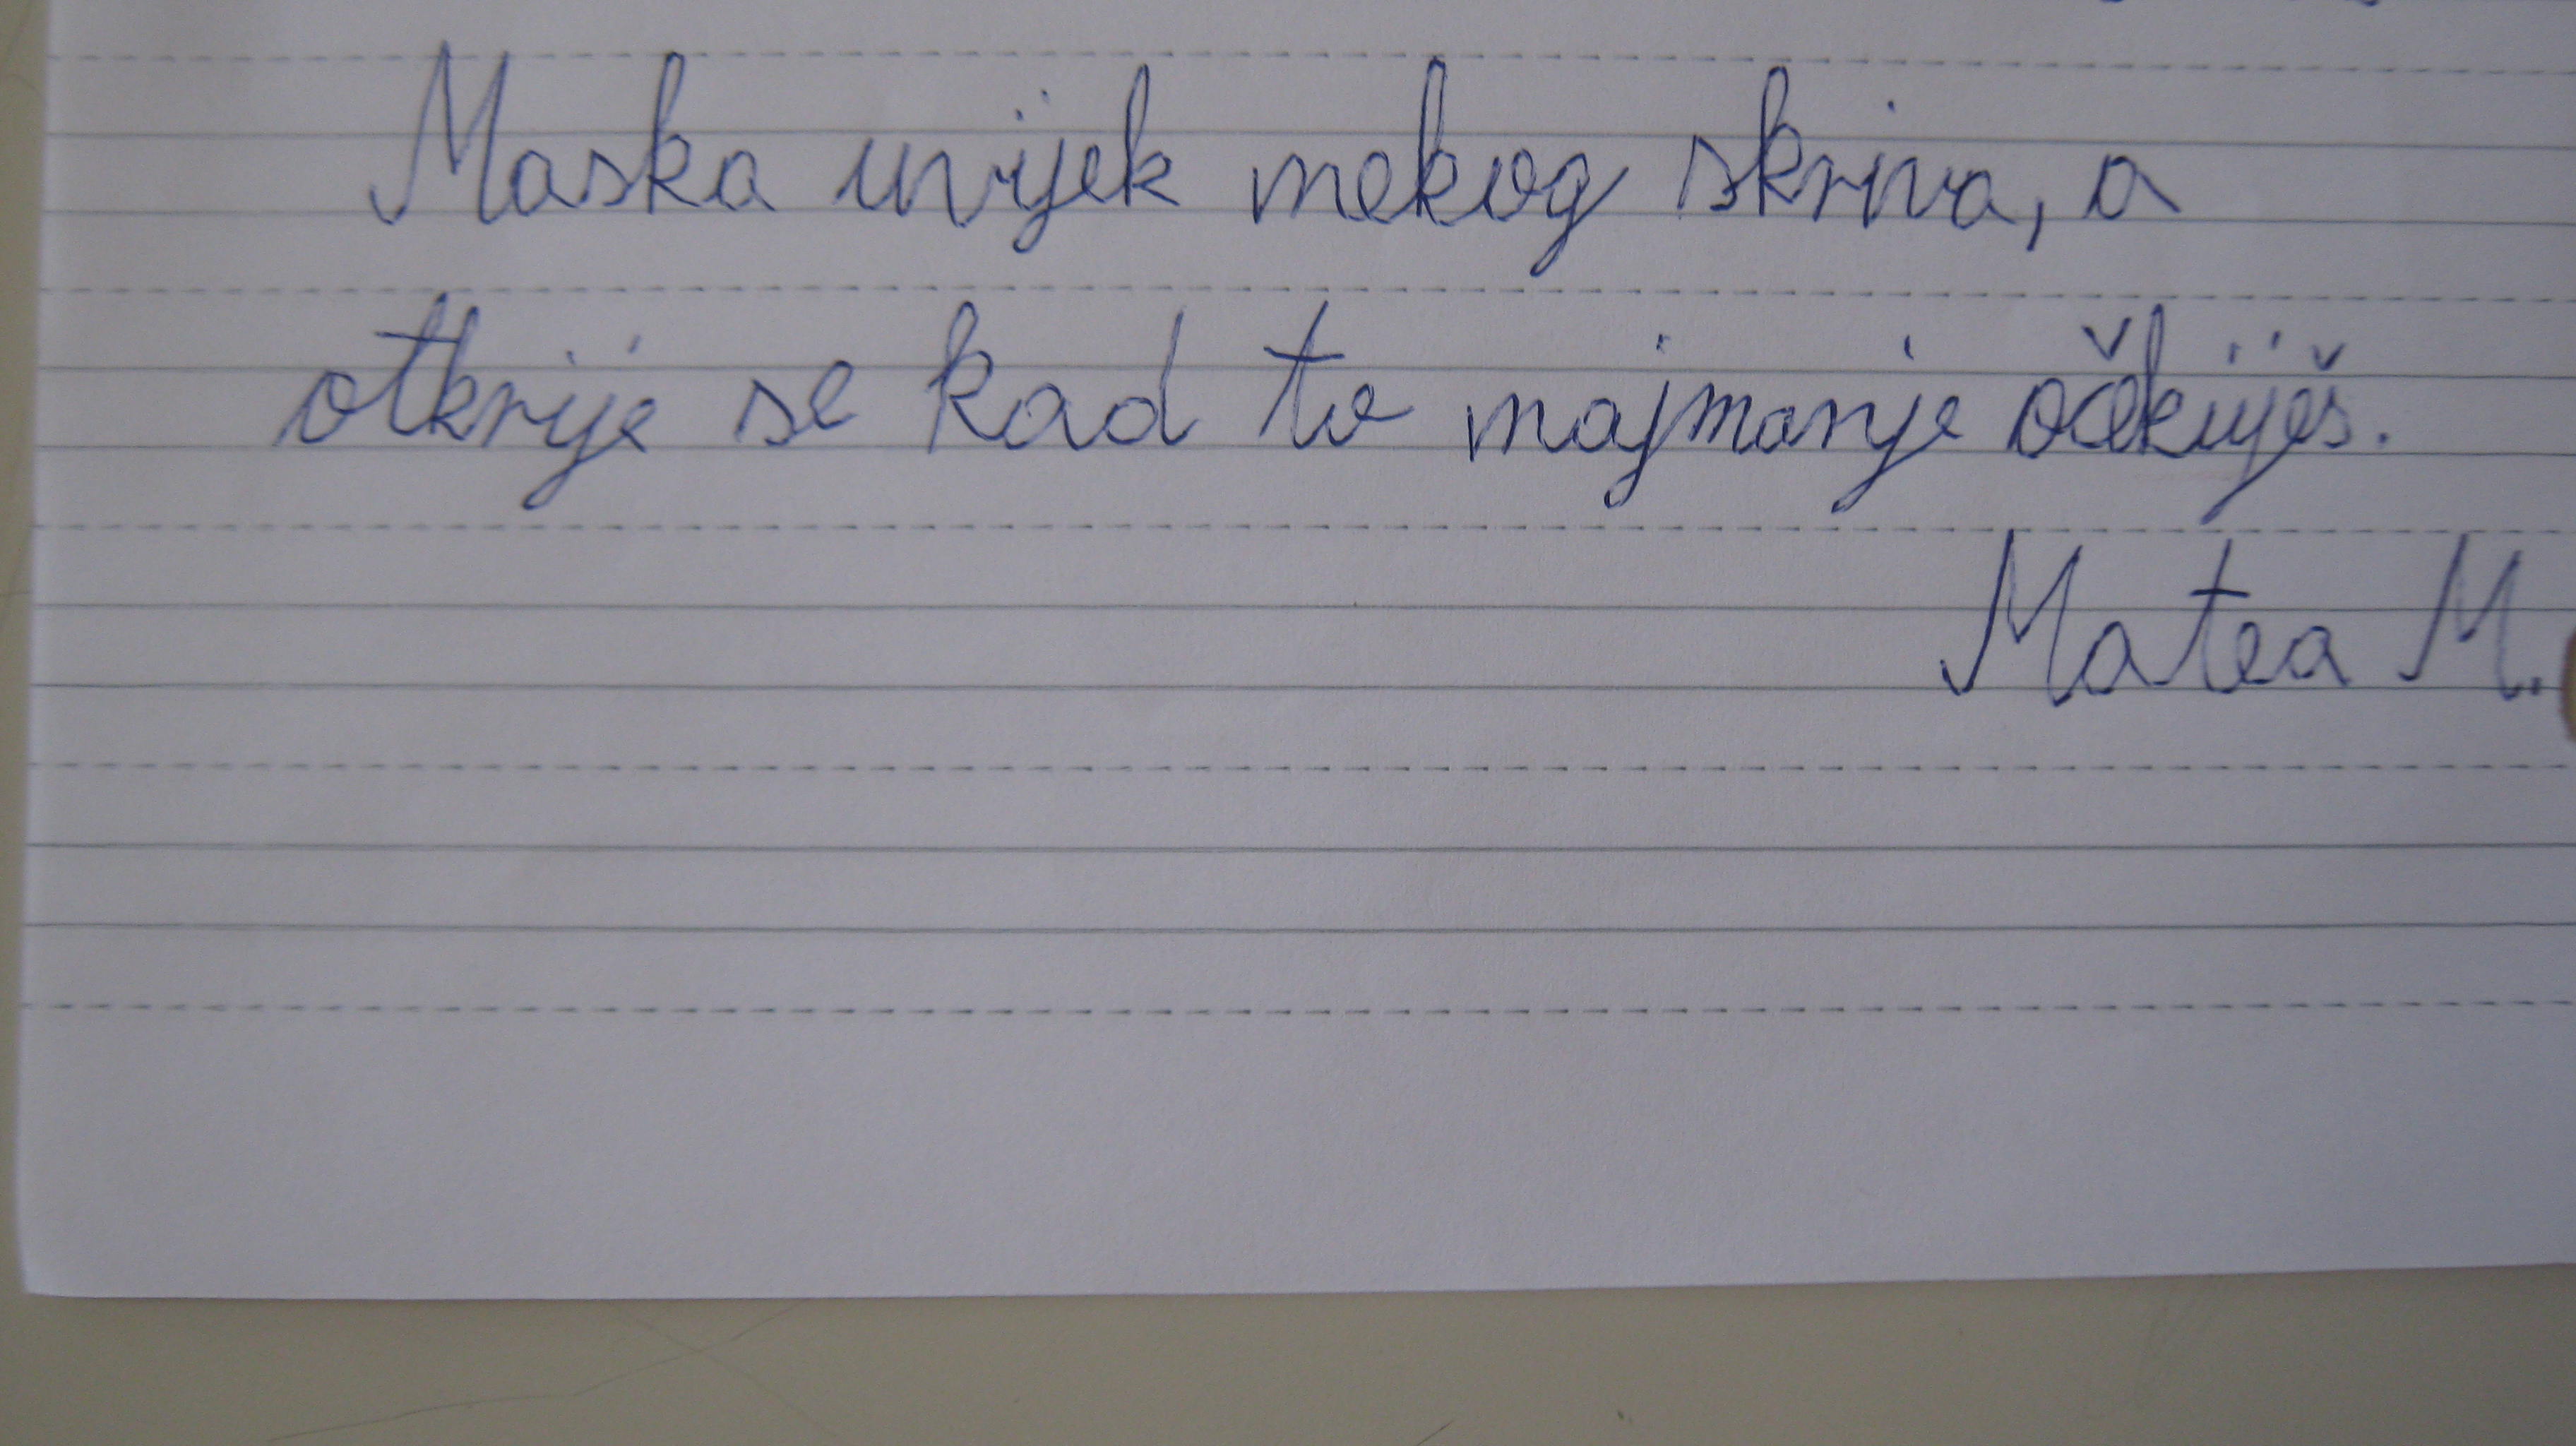 Maska uvijek nekog skriva, a
otkrije se kad to najmanje očekiješ.
Matea M.